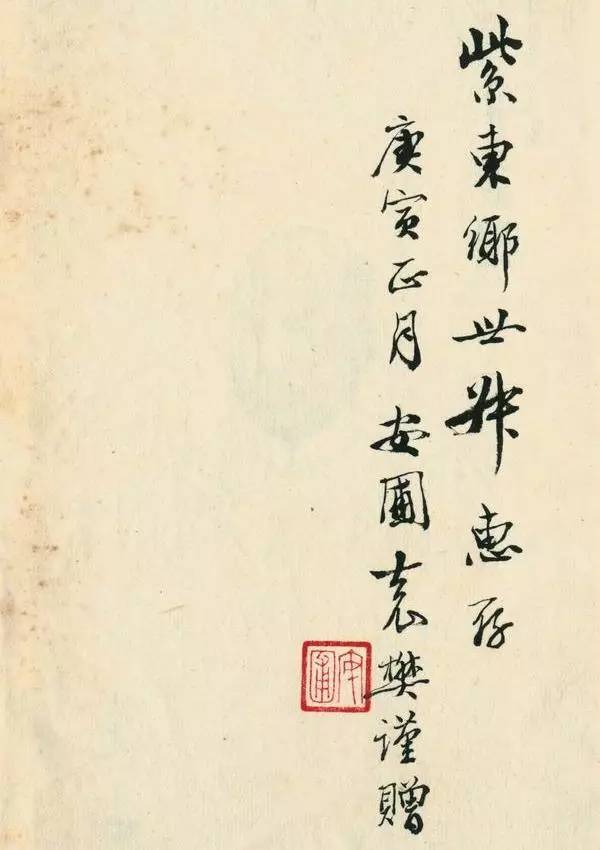 紫東鄉世叔惠存
庚寅正月安圃袁樊謹贈
安圃